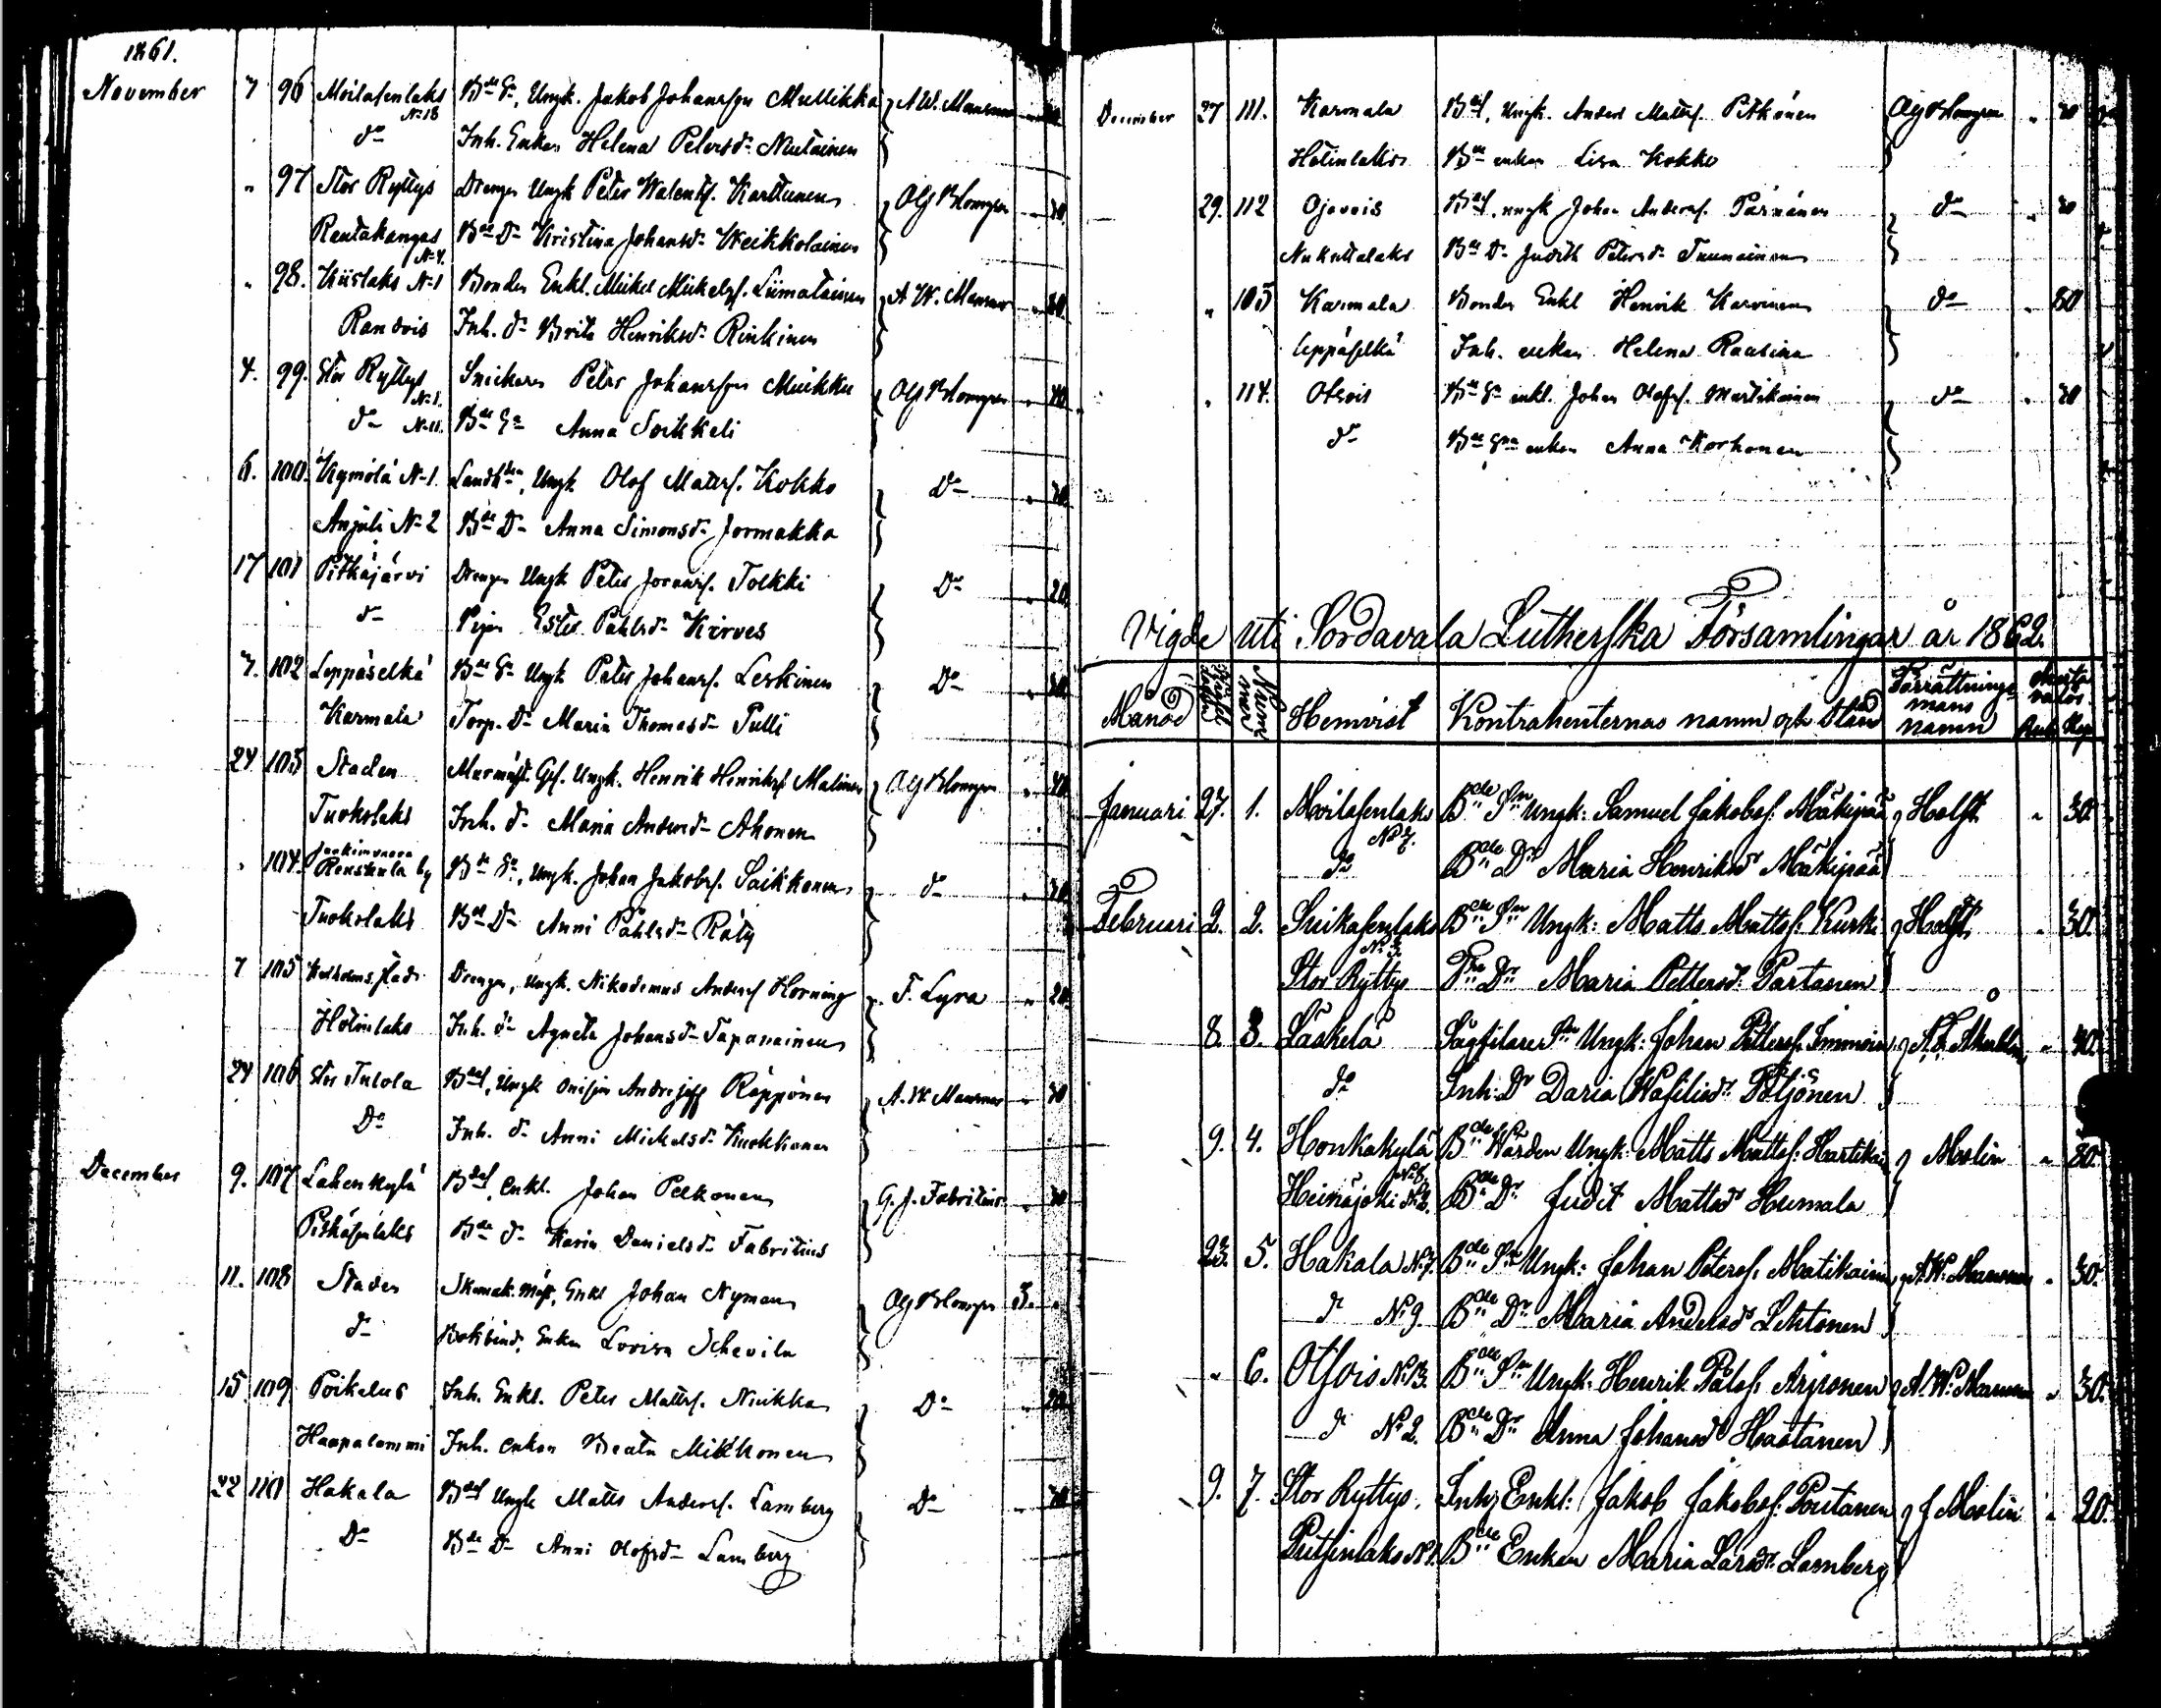 1861.
November 7 96 Moilasenlaks No 18 Bde Sn, Ungk. Jakob Johansson Mullikka A W. Mansner
do Inh. Enkan Helena Petersdr Nuutainen
" 97 Stor Ryttys Drengen Ungk Peter Walentss. Karttunen Olg Blomgren 20
Rautakangas No 4. Bde Dr Kristina Johansdr Weikkolainen
" 98. Kiislaks No 1 Bonden Enkl. Mickel Mickelss. Liimatainen A W. Mansner 80.
Randvis Inh. dr Brita Henriksdr Rinkinen
4. 99. Stor Ryttys No 1. Snickaren Peter Johansson Muikku Olg Blomgren 40
do No 11. Bde Ea Anna Sorkkeli
6. 100. Kymölä No 1. Landbden, Ungk Olof Matss. Kokko Do 30
Anjuli No 2 Bde Dr Anna Simonsdr Jormakka
17 101 Pitkäjärvi Drengen Ungk Peter Joranss. Tolkki Do 20
do Pigan Ester Påhlsdr Kirves
7. 102 Leppäselkä Bde Sn Ungk Peter Johanss. Leskinen Do 30
Karmala Torp. Dr Maria Thomasdr Pulli
24 103 Staden Murmäst. Ges. Ungk. Henrik Henrikss. Malinen Olg Blomgren 40
Tuokslaks Inh. dr Maria Andersdr Ahonen
" 104. Joakimvaara Rauskula by Bde Sn, Ungk. Johan Jakobss. Saikkonen do 30
Tuokslaks Bde Dr Anni Påhlsdr Räty
7 105 Drengen, Ungk. Nikodemus Anderss Horning F. Lyra " 20
Hotinlaks Inh. dr Agneta Johansdr Tapanainen
24 106 Stor Tulola Bdes, Ungk Onisim Andrejeff Räppönen A. W Mansner " 30
Do Inh. dr Anni Mickelsdr Kuokkanen
December 9. 107 Lahenkylä Bdes, Enkl. Johan Pelkonen G. J. Fabritius 30
Pitkäsenlaks Bde dr Karin Danielsdr Fabritius
11. 108 Staden Skomak. Mäst, Enkl Johan Nyman Olg Blomgren 3. "
do Bokbind. Enkan Lovisa Schevila
15 109 Poikelus Inh. Enkl. Peter Matss. Niukka Do 20
Haapalammi Inh. enkan Beata Mikkonen
22 110 Hakala Bdes Ungk Matts Anderss. Lamberg Do 30
Do Bde Dr Anni Olofsdr Lamberg
December 27 111. Karmala Bdes, Ungk. Anders Matss. Pitkönen Olg Blomgren " 30
Hotinlaks Bde enkan Lisa Kokko
29. 112 Ojavois Bdes, ungk Johan Anderss. Pärnänen do " 30
Nukuttalaks Bde Dr Judith Petersdr Tuunainen
" 103 Karmala Bonden Enkl Henrik Karvinen do " 80
Leppäselkä Inh. enkan Helena Raasina
" 114. Otsois Bde Sn enkl. Johan Olofss. Martikainen do " 30
do Bde Sns enkan Anna Korhonen
Vigde uti Sordavala Lutherska Församlingar år 1862.
Månad Num mer Hemvist Kontrahenternas namn och stånd Förrättnings mans namn Rub. Kop.
Januari 27. 1. Moilasenlaks No 7. Bde Sn Ungk: Samuel Jakobss: Mäkipää Holst. " 30.
do Bde Dr Maria Henriksdr Mäkipää
Februari 2. 2. Suikasenlaks No 3. Bde Sn Ungk: Matts Mattss: Kurki Holst. " 30.
Stor Ryttys Dr Maria Pettersdr Partanen
8. 3. Läskelä Sågfilare Sn Ungk: Johan Petterss. Immoin " 40.
do Inh: Dr Daria Wasiliedr Pöljönen
9. 4. Honkakylä No 8. Bde Värden Ungk: Matts Mattss: Hartikai Molin " 80.
Heinäjoki No 2. Bde Dr Judit Mattsdr Humala
23. 5. Hakala No 7. Bde Sn Ungk: Johan Peterss. Matikainen A. W. Mansner " 30.
do No 9. Bde Dr Maria Andersdr Lehtonen
" 6. Otsois No 13. Bde Sn Ungk: Henrik Pålss: Arponen A. W. Mansner " 30.
do No 2. Bde Dr Anna Johansdr Haatanen
9. 7. Stor Ryttys. Inh: Enkl: Jakob Jakobss: Poutanen J Molin " 20.
Putsinlaks No 1. Bde Enkan Maria Larsdr Lamberg